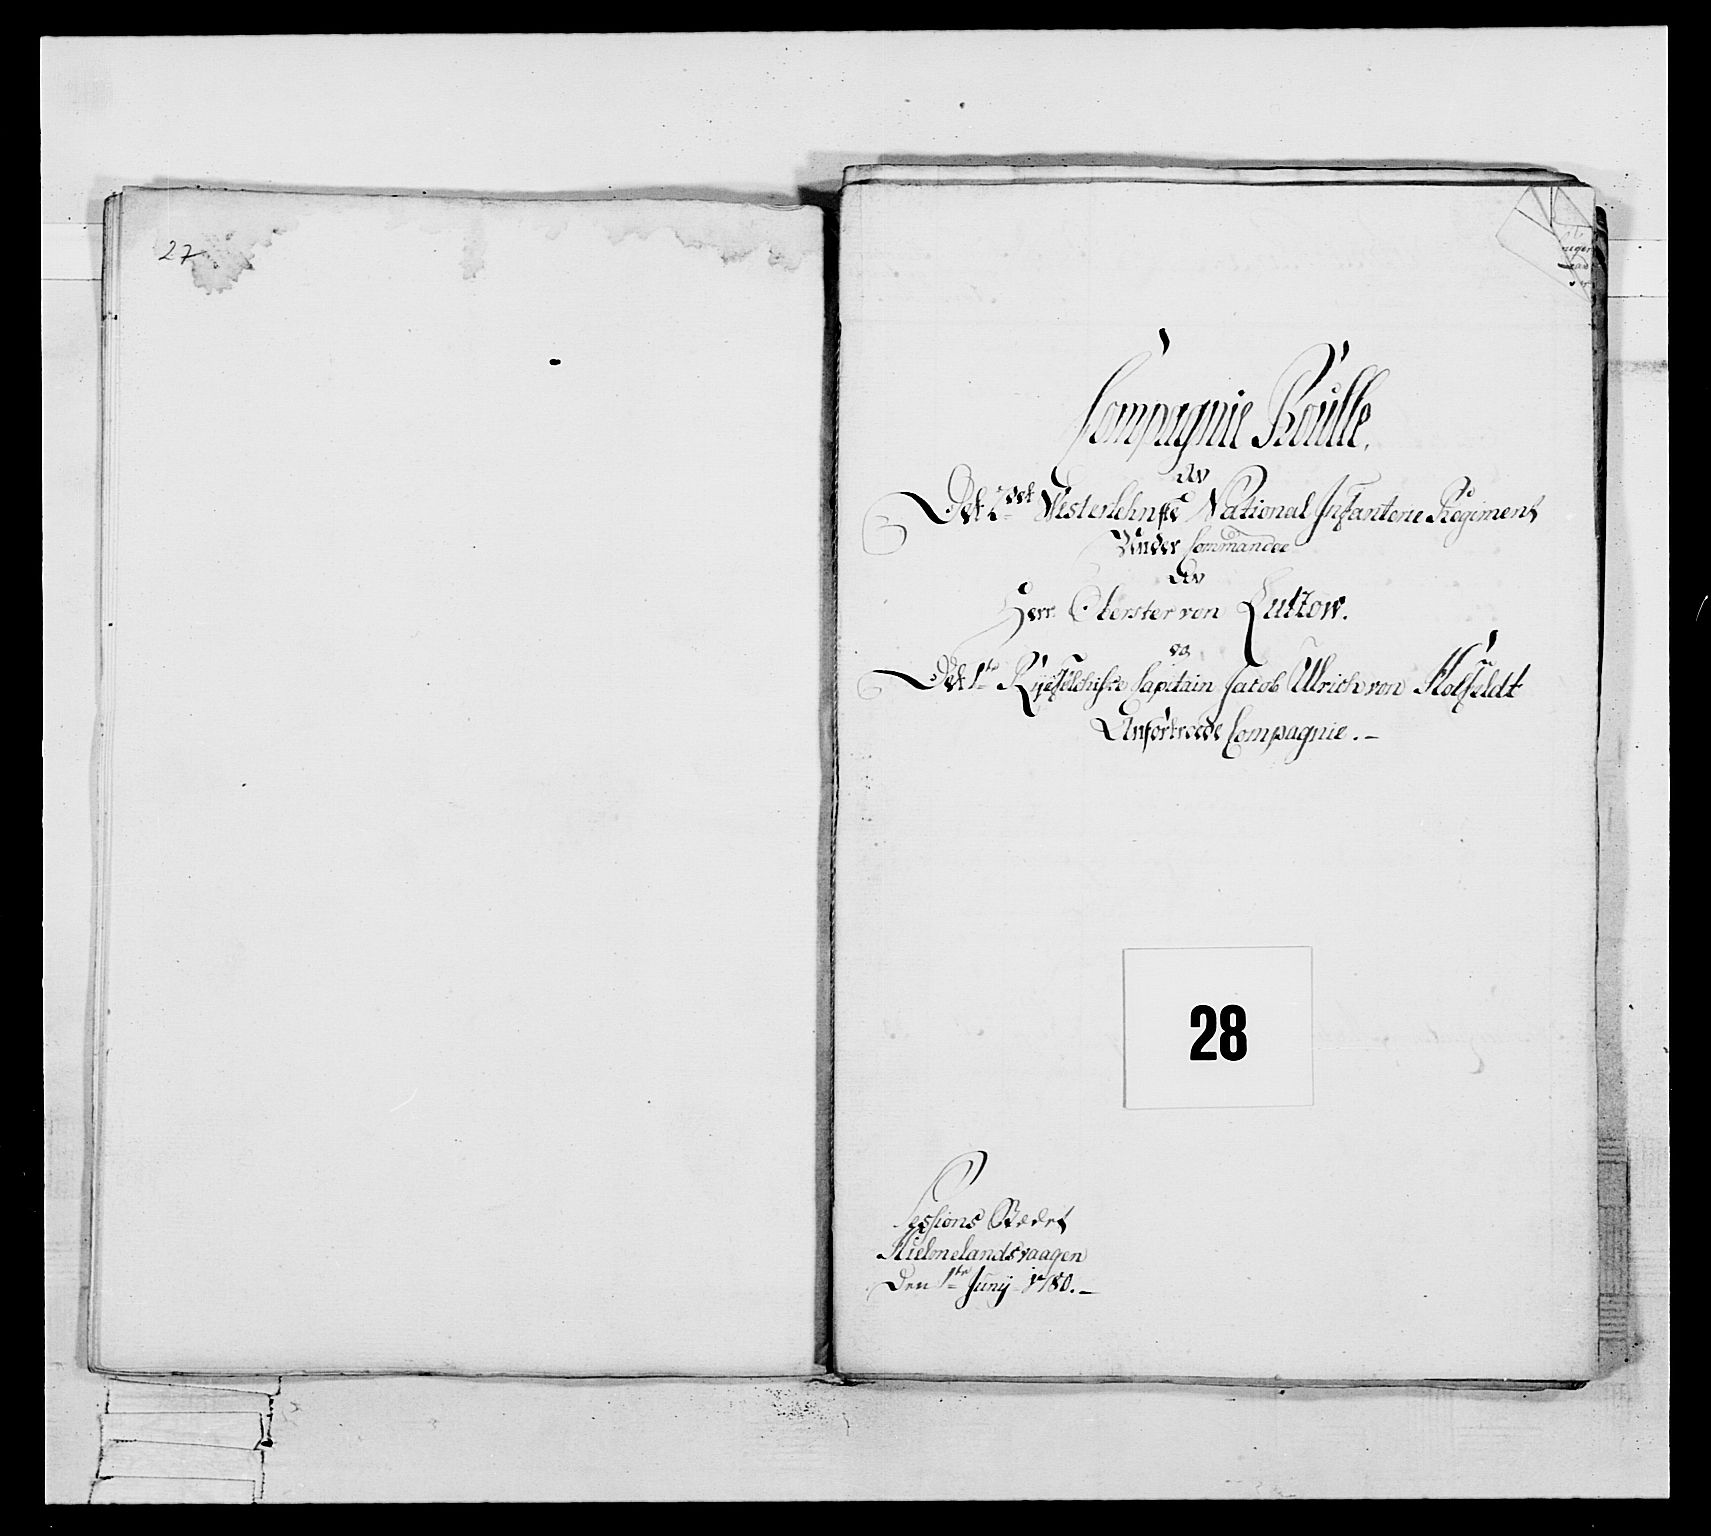 27
Compagnie Roulle,
Av
Det 2det Vesterlehnske National Infanterie Regiment
Under Commandee
Av
Herr Oberster von Lutzow.
og
Det 1te Ryefelchiske Capitain Jacob Ullrich von Kolfeldt
Anfortroede Compagnie.-
28
Sessions Stedet
Hielmelandsvaagen
Den 1te Junij 1780.-